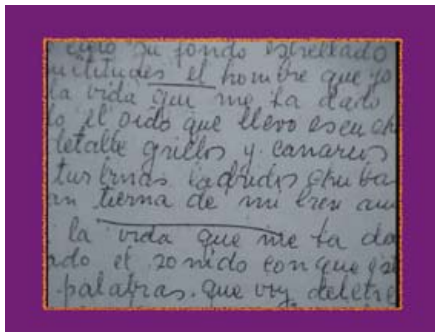 su fondo estrellado
el hombre que yo
la vida que me ha dado
el oido que llevo escuch
grillos y canarios
turbinas ladridos chuba
tierna de mi
la vida que me ha da
el sonido con que
palabras. que voy deletre